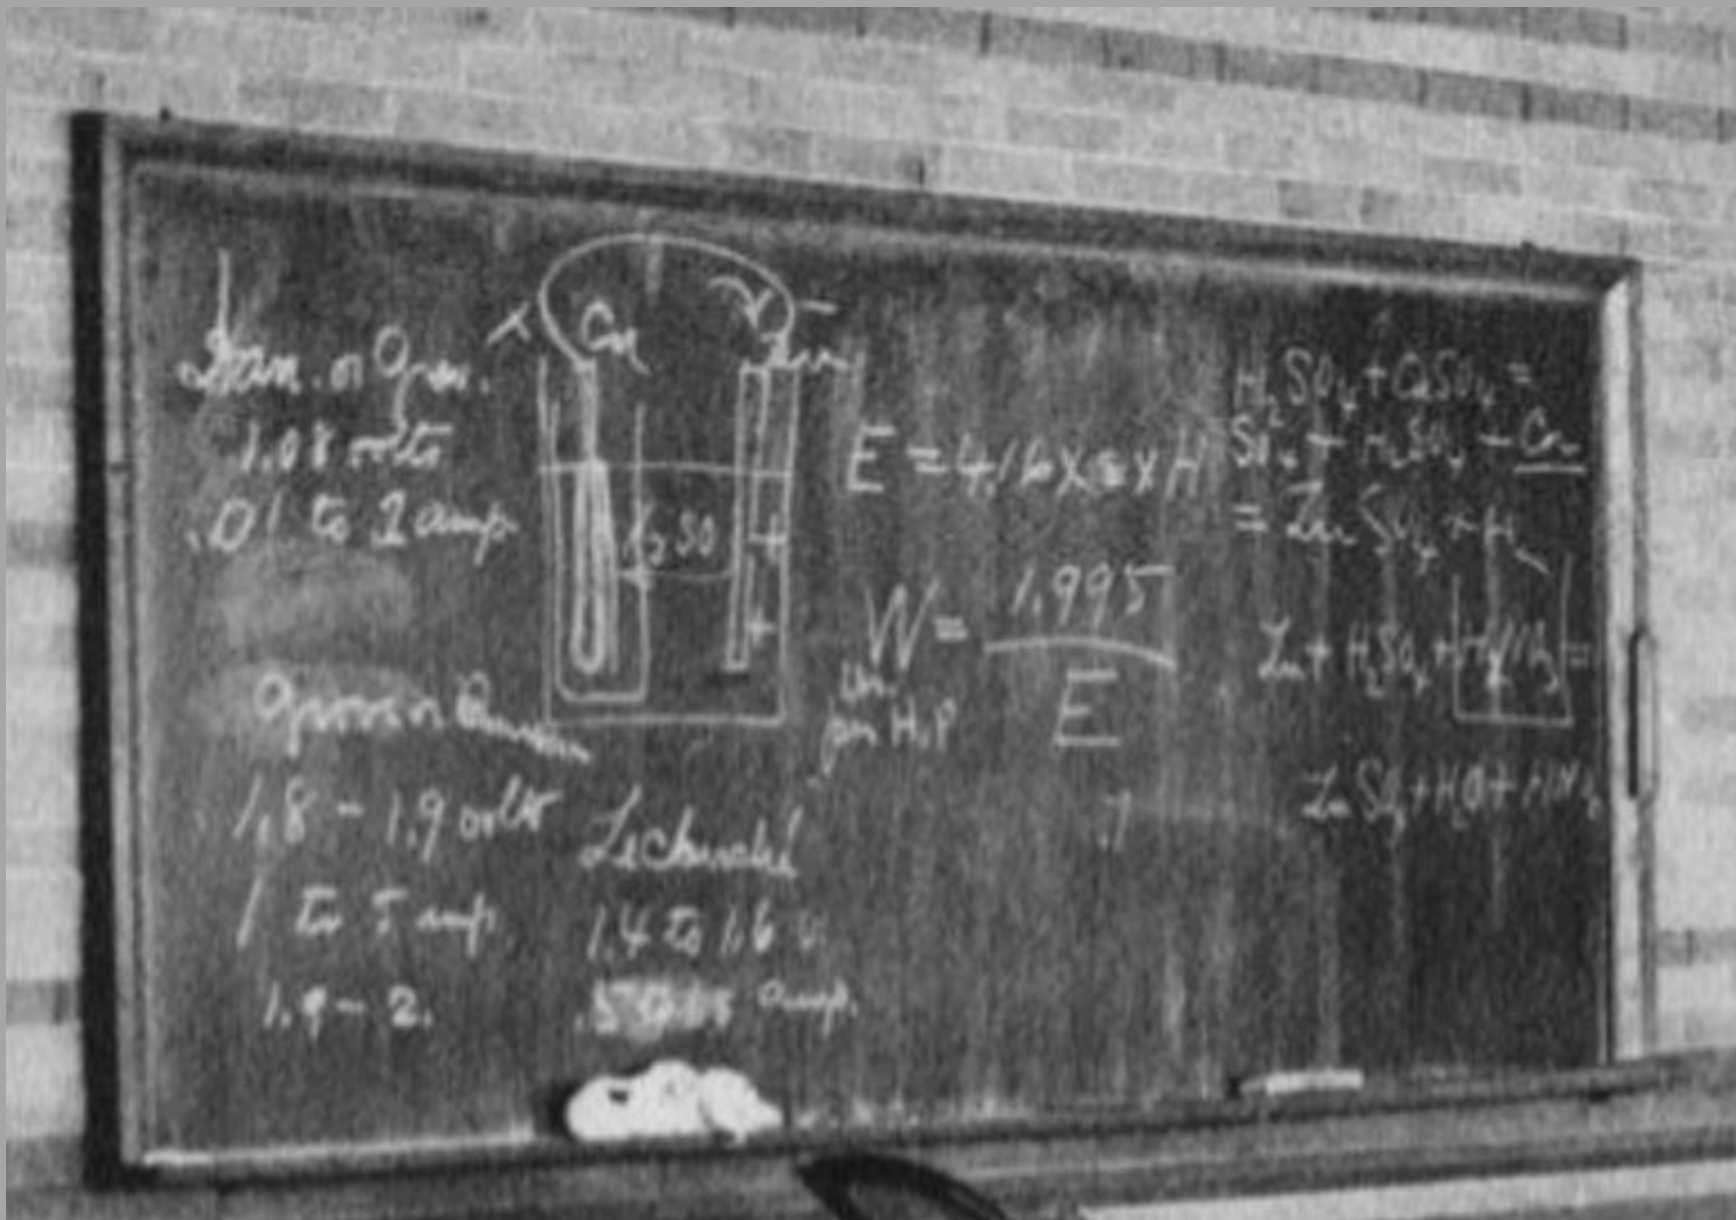 Dan. or Grav.
1.08 volts
.01 to 2 amp
Grove or Bunsen
1.8 - 1.9 volts
1 to 5 amp.
1.9 - 2.
Cu
-
+
+
Leclanché
1.4 to 1.6 v.
amp.
E = 4.16 x e x H
W = 1.995
E
per H.P
.7
H₂SO₄ + CuSO₄ =
SO₄ + H₂SO₄ + Cu
= Zn SO₄ + H₂
Zn + H₂SO₄ +
Zn SO₄ + H₂O +